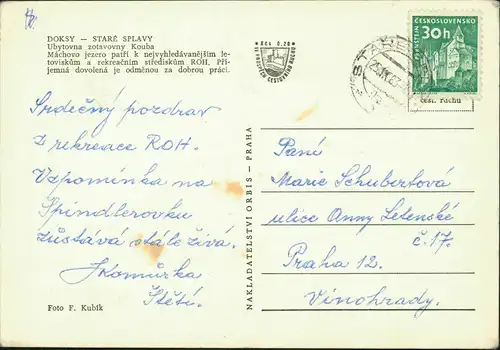 DOKSY — STARÉ SPLAVY
Ubytovna zotavovny Kouba
Máchovo jezero patří k nejvyhledávanějším le-
toviskům a rekreačním střediskům ROH. Pří-
jemná dovolená je odměnou za dobrou práci.
Srdečný pozdrav
z rekreace ROH.
Vzpomínka na
Špindlerovku
zůstává stále živá.
JKomůrka
Štětí.
Foto F. Kubík
NAKLADATELSTVÍ ORBIS - PRAHA
Kčs 0,20
VE PROSPĚCH CESTOVNÍHO RUCHU
STARÉ
ČESKOSLOVENSKO
30h
PERNŠTEJN
cest. ruchu
Paní
Marie Schubertová
ulice Anny Letenské
č. 17.
Praha 12.
Vinohrady.